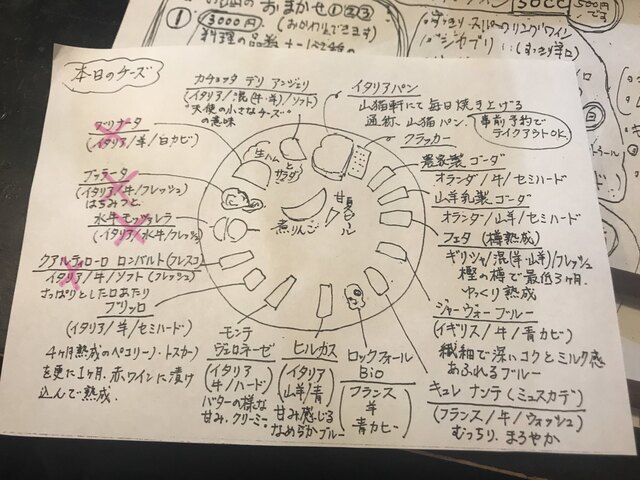 おまかせ①②③
①
3000円
(おかわりできます)
50cc
500円
です
本日のチーズ
カチョッタ デリ アンジェリ
(イタリア/混(牛・羊)/ソフト)
"天使の小さなチーズ"
の意味
イタリアパン
山猫軒にて毎日焼き上げる
通称、山猫パン.
事前予約で
テイクアウトOK.
クラッカー
(イタリア/羊/白カビ)
ブッラータ
(イタリア/牛/フレッシュ)
はちみつと
水牛モッツァレラ
(イタリア/水牛/フレッシュ)
クアルティローロ ロンバルト(フレスコ)
イタリア/牛/ソフト(フレッシュ)
さっぱりとした口あたり
ブリッロ
(イタリア/羊/セミハード)
4ヶ月熟成のペコリーノ・トスカーノ
を更に1ヶ月、赤ワインに漬け
込んで熟成.
生ハム
と
サラダ
煮りんご
甘夏
農家製ゴーダ
オランダ/牛/セミハード
山羊乳製ゴーダ
オランダ/山羊/セミハード
フェタ(樽熟成)
ギリシャ/混(羊・山羊)/フレッシュ
樫の樽で最低3ヶ月.
ゆっくり熟成
ジャーヴォーブルー
(イギリス/牛/青カビ)
繊細で深いコクとミルク感
あふれるブルー
キュレ ナンテ(ミュスカデ)
(フランス/牛/ウォッシュ)
むっちり、まろやか
モンテ
ヴェロネーゼ
(イタリア
/牛/ハード)
バターの様な
甘み、クリーミー
ヒルカス
(イタリア
山羊/青)
甘み感じる
なめらかブルー
ロックフォール
Bio
(フランス
羊
青カビ)